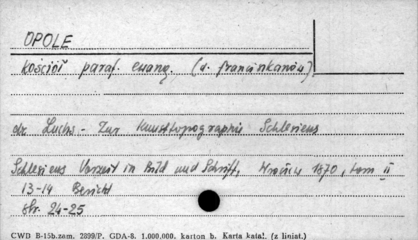 OPOLE
kościół paraf. ewang. (d. franciszkanów)
dr. Luchs - Zur Kunsttopographie Schlesiens
Schlesiens Vorzeit in Bild und Schrift, 1870, tom II
13-14 Bericht
Str. 24-25
CWD B-15b.zam. 2899/P. GDA-8. 1.000.000. karton b. Karta katal. (z liniat.)